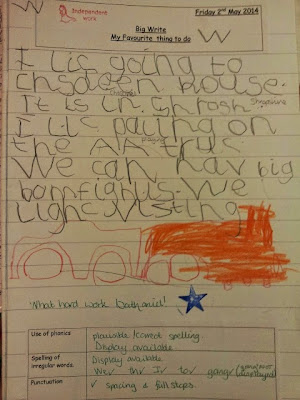 W
Independent work
Friday 2nd May 2014
Big Write
My Favourite thing to do
W
I lic going to
house.
It is in. Shrosh.
Shropshire
I lic paling on
playing
the AA truc.
We can hav big
bomfighus. We
Light
What hard work
Use of phonics
plausible/correct spelling
Display available
Spelling of irregular words.
Display available
We the I to going
Punctuation
✓ spacing & full stops.